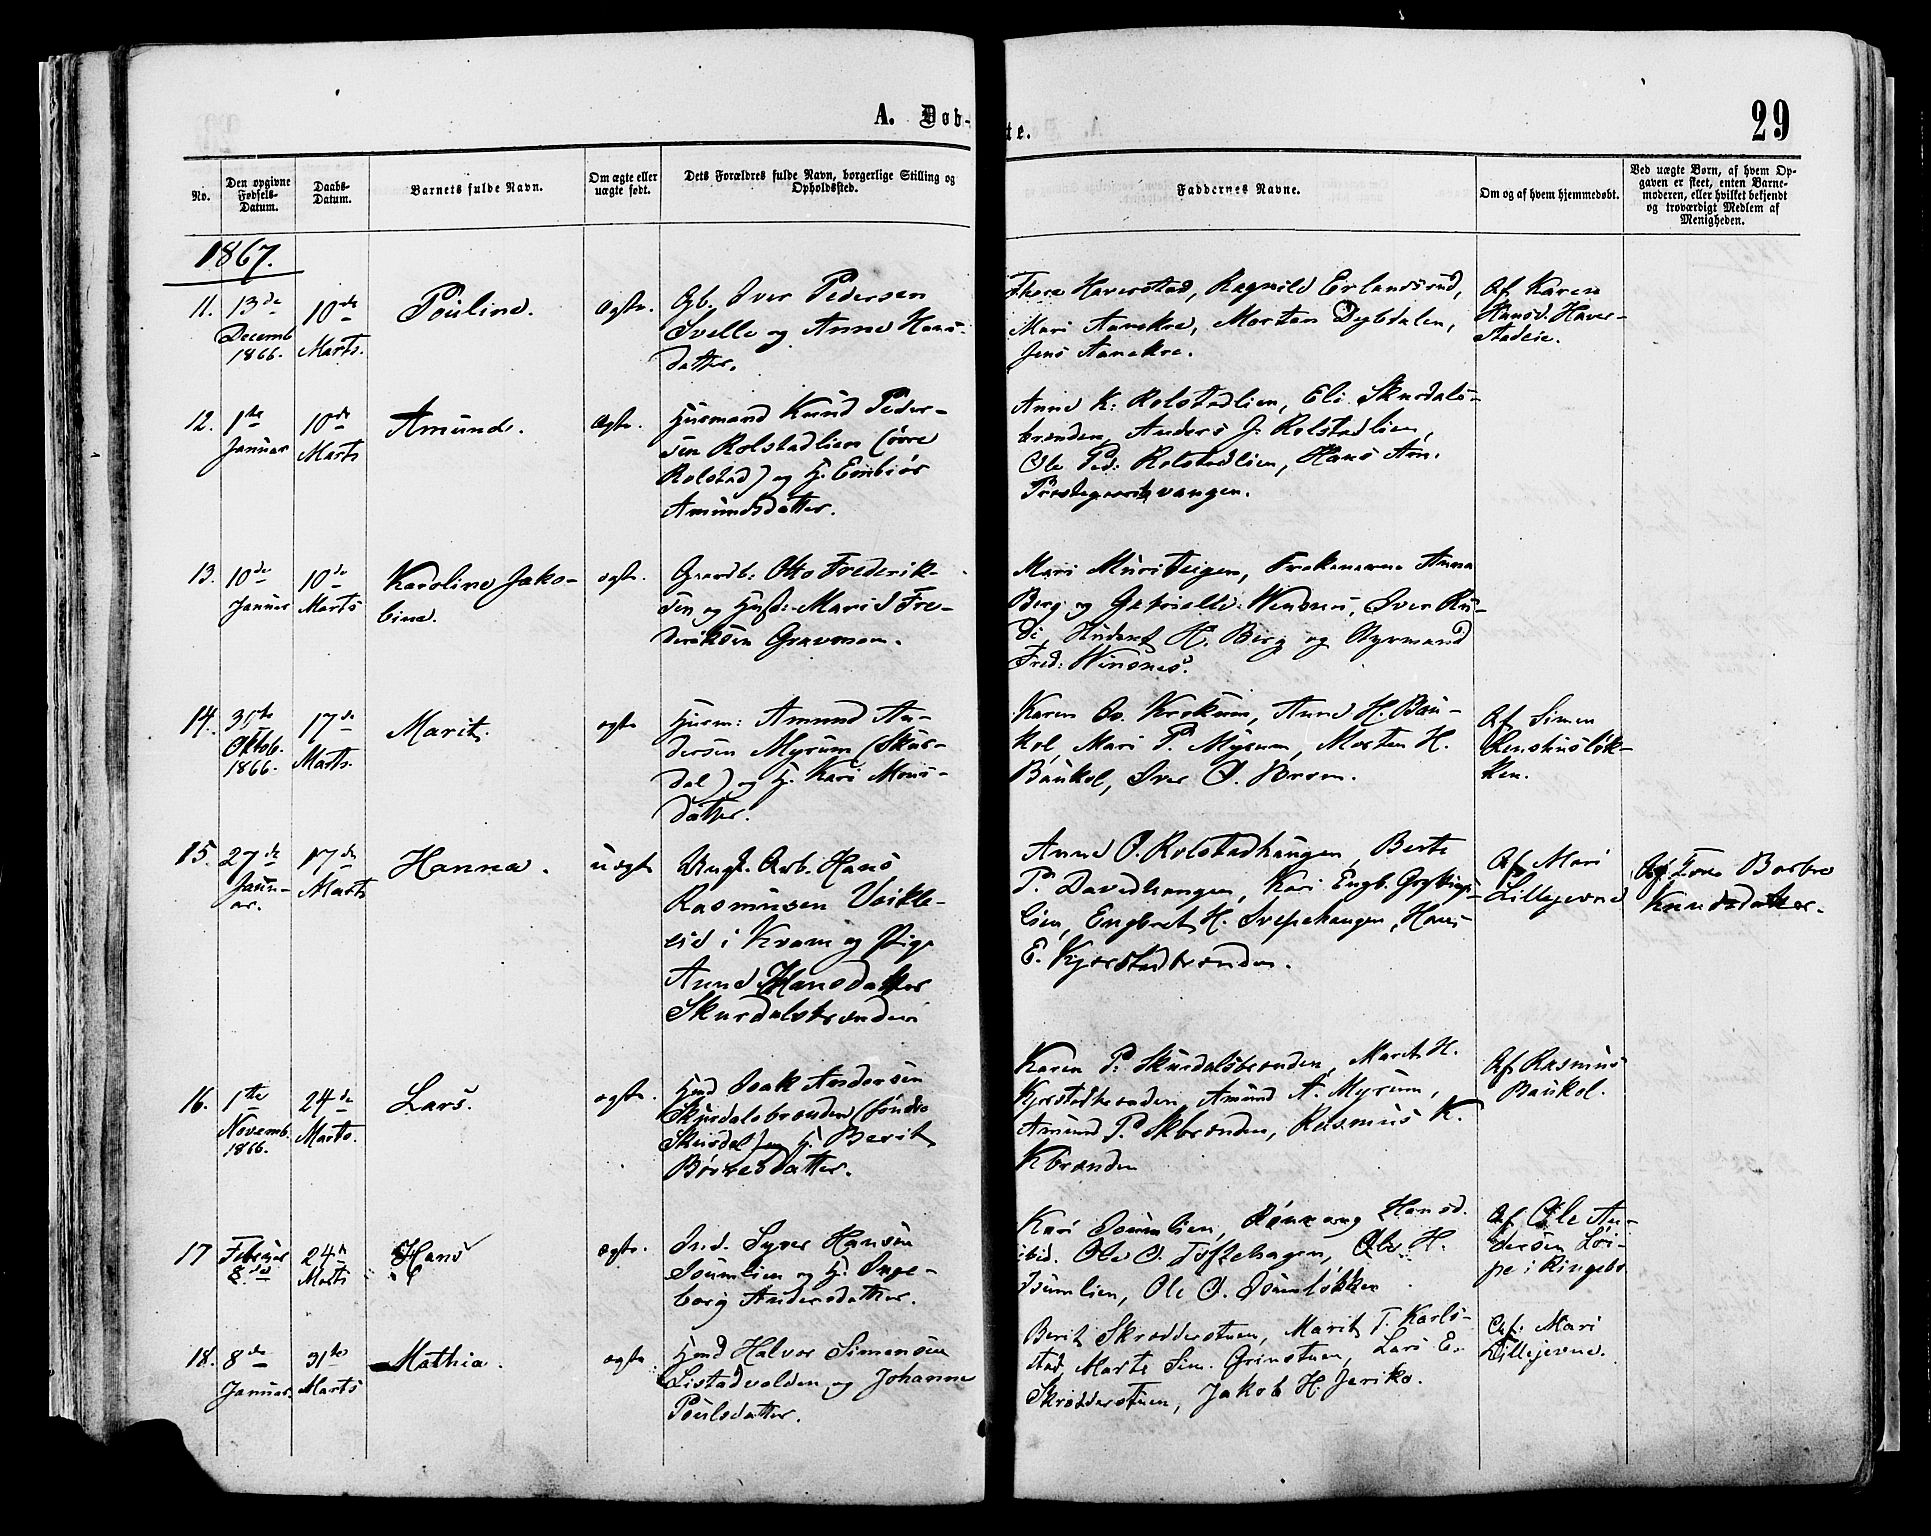 A. Døb-
te.
29
No.
Den opgivne Fødsels-Datum.
Daabs-Datum.
Barnets fulde Navn.
Om ægte eller uægte født.
Dets Forældres fulde Navn, borgerlige Stilling og Opholdssted.
Faddernes Navne.
Om og af hvem hjemmedøbt.
Ved uægte Børn, af hvem Op-
gaven er skeet, enten Barne-
moderen, eller hvilket bekjendt
og troværdigt Medlem af
Menigheden.
1867.
11.
13de
Decemb
1866.
10de
Marts.
Pauline.
Ægte.
Gb. Iver Pedersen
Svelle og Anne Hans-
datter.
Thora Haverstad, Ragnild Erlandsrud,
Mari Aanekre, Morten Dybdalen,
Jens Aanekre.
Af Karen
Hansd. Haver-
stadeie.
12.
1ste
Januar
10de
Marts
Amund.
Ægte.
Husmand Knud Peder-
sen Rolstadlien (øvre
Rolstad) og H. Embiør
Amundsdatter.
Anne K: Rolstadlien, Eli Skurdals-
brenden, Anders J: Rolstadlien,
Ole Ped: Rolstadlien, Hans Am.
Præstegaardsvangen.
13.
10de
Januar
10de
Marts
Karoline Jako-
bine.
ægte.
Gaardb: Otto Frederik-
sen og Hustr. Marie Fre-
deriksen Gravemoen.
Mari Muriteigen, Frøkenerne Anna
Berg og Gabrielle Windsnes, Iver Ru-
di, Student H. Berg og Styrmand
Fred: Winsnes.
14.
31te
Oktob.
1866.
17de
Marts.
Marit.
ægte
Husm: Amund An-
dersen Myrum (Skur-
dal) og H. Kari Mons-
datter.
Karen Ov. Krekum, Anne H. Bau-
kol, Mari P. Myrum, Morten H.
Baukol, Iver O. Brom.
Af Simen
Renshusløk-
ken.
15.
27de
Janu-
ar.
17de
Marts
Hanna.
uægte
Ungk. Arb. Hans
Rasmusen Veikle-
eid i Kvam og Pige
Anne Hansdatter
Skurdalsbrenden
Anne O. Rolstadhaugen, Berte
P. Davidhaugen, Kari Engb. Grytings-
lien, Engbret H. Svepehaugen, Hans
E. Kjørstadbrenden.
Af Mari
Lillejevne
Af Tone Barbro
Knudsdatter.
16.
1ste
Novemb.
1866.
24de
Marts.
Lars.
ægte.
Hmd Isak Andersen
Skurdalsbrenden (søndre
Skurdal) og H. Berit
Børresdatter.
Karen P. Skurdalsbrenden, Marit H.
Kjørstadbrenden, Amund A. Myrum,
Amund P. Skbrenden, Rasmus K.
Kbrenden
Af Rasmus
Baukol.
17
Februar
8de
24de
Marts
Hans
ægte.
Ind. Syver Hansen
Isumlien og H. Inge-
borg Andersdatter.
Kari Isumlien, Rønnaug Hansd.
ibid. Ole O. Toftehagen, Ole H.
Isumlien, Ole O. Isumløkken
Af Ole An-
dersen Lei-
pe i Ringebo
18.
8de
Januar.
31te
Marts
Mathia.
ægte
Hmd Halvor Simensen
Listadvolden og Johanne
Poulsdatter.
Berit Skrædderstuen, Marit T. Karls-
stad, Marte Sim. Grinstuen, Lars E.
Skrædderstuen, Jakob H. Jeriko.
Af: Mari
Lillejevne.